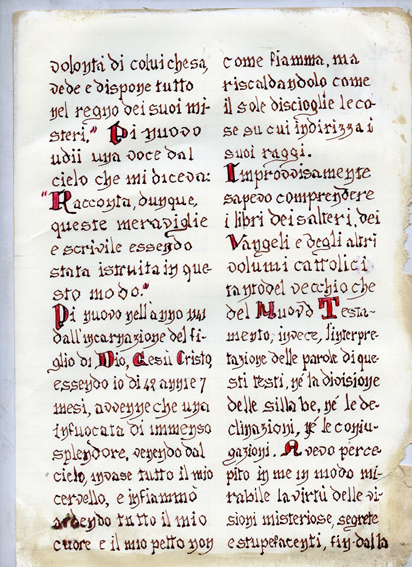 volontà di colui che sa,
vede e dispone tutto
nel regno dei suoi mi-
steri." Di nuovo
udii una voce dal
cielo che mi diceva:
"Racconta, dunque,
queste meraviglie
e scrivile essendo
stata istruita in que-
sto modo."
Di nuovo nell'anno 1141
dall'incarnazione del fi-
glio di Dio, Gesù Cristo,
essendo io di 42 anni e 7
mesi, avvenne che una
infuocata di immenso
splendore, venendo dal
cielo, invase tutto il mio
cervello, e infiammò
ardendo tutto il mio
cuore e il mio petto non
come fiamma, ma
riscaldandolo come
il sole discioglie le co-
se su cui indirizza i
suoi raggi.
Improvvisamente
sapevo comprendere
i libri dei salteri, dei
Vangeli e degli altri
volumi cattolici
tanto del vecchio che
del Nuovo Testa-
mento, invece, l'interpre-
tazione delle parole di que-
sti testi, né la divisione
delle sillabe, né le de-
clinazioni, né le coniu-
gazioni. Avevo perce-
pito in me in modo mi-
rabile la virtù delle vi-
sioni misteriose, segrete
e stupefacenti, fin dalla